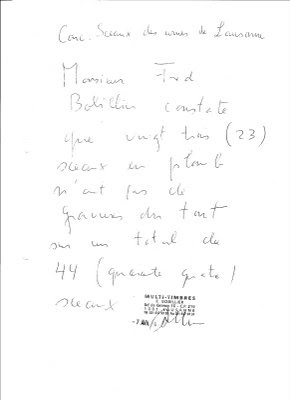 Conc. Sceaux des urnes de Lausanne
Monsieur Fred
constate
que vingt trois (23)
sceaux en plomb
n'ont pas de
gravures du tout
sur un total de
44 (quarante quatre)
sceaux
MULTI-TIMBRES